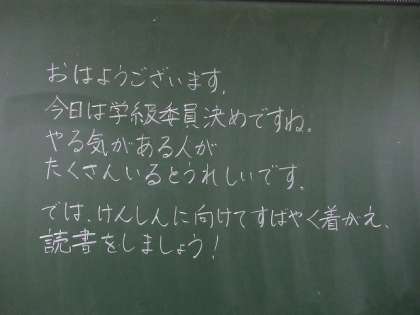 おはようございます。
今日は学級委員決めですね。
やる気がある人が
たくさんいるとうれしいです。
では、けんしんに向けてすばやく着がえ、
読書をしましょう!